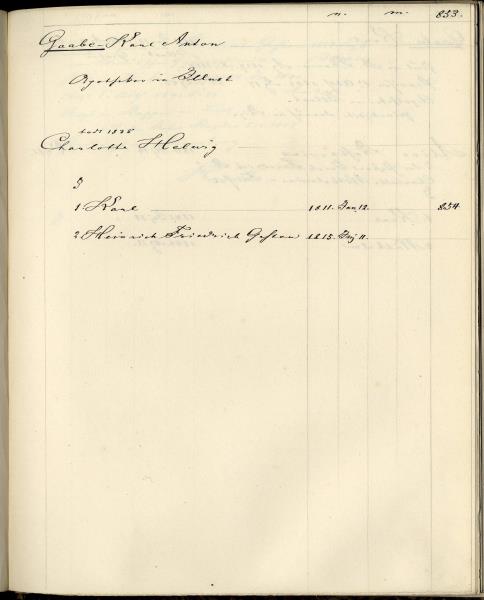 n. m. 853.
Gaabe - Karl Anton
Apotheker in
todt 1838
Charlotte Helwig
1. Karl 1811. Jan. 12. 854
2. Heinrich Friedrich Gustav 1815. 11.